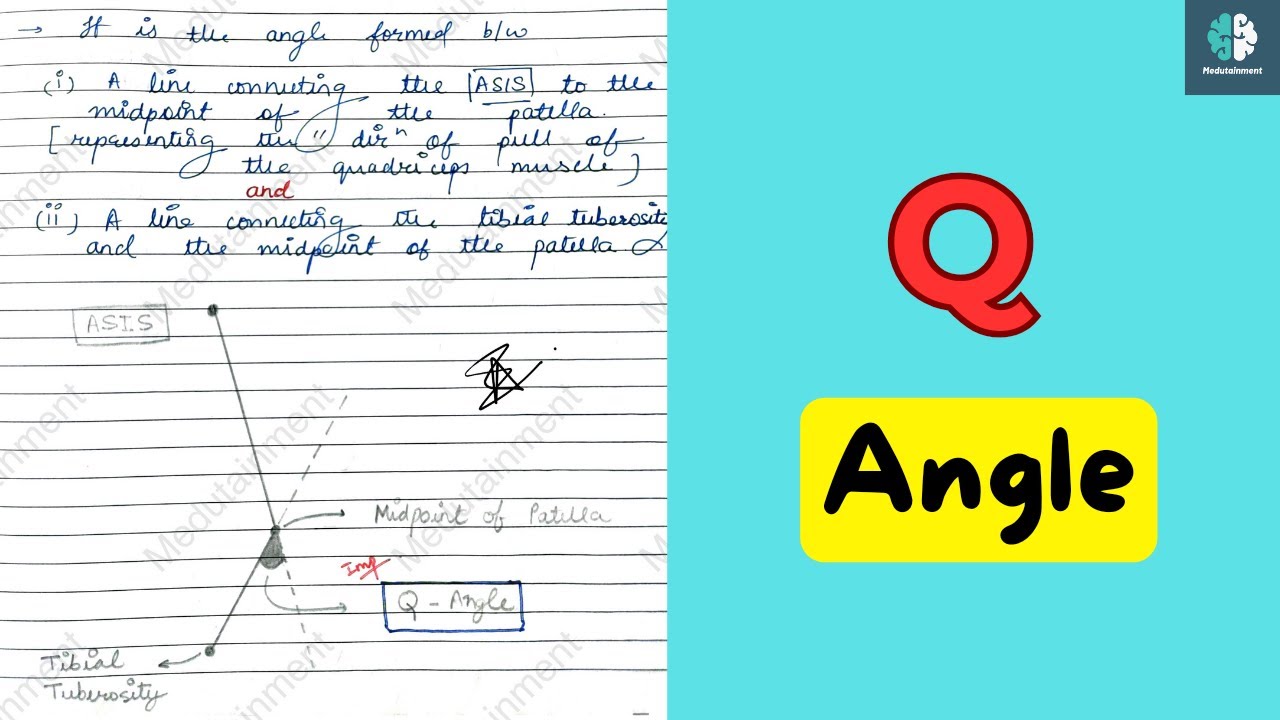 → It is the angle formed b/w
(i) A line connecting the ASIS to the
midpoint of the patella.
[representing the dirⁿ of pull of
the quadriceps muscle]
and
(ii) A line connecting the tibial tuberosity
and the midpoint of the patella
ASIS
Midpoint of Patella
Imp
Q - Angle
Tibial
Tuberosity
Medutainment
Q
Angle
Medutainment